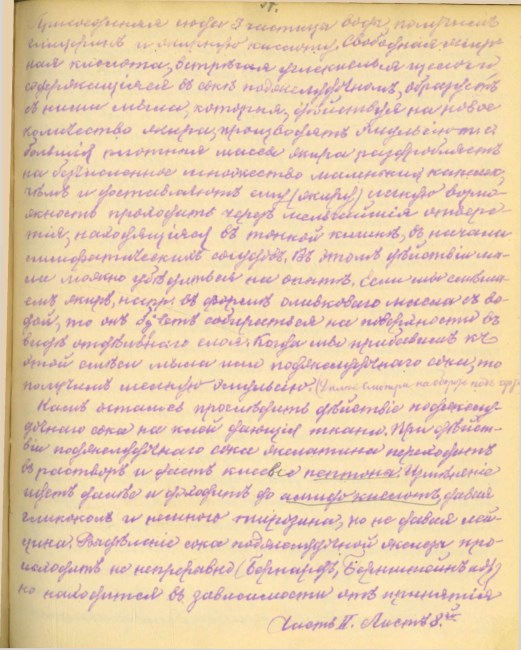 Присоединяя по 3 частица воды, получимъ
глицеринъ и жирную кислоту. Свободная жир-
ная кислота, встрѣчая углекислыя щелочи,
содержащіяся въ сокѣ поджелудочномъ, образуетъ
съ ними мыла, которыя, дѣйствуя на новое
количество жира, производятъ эмульсію т. е.
большія плотныя массы жира раздробляютъ
на безчисленное множество маленькихъ капель,
и доставляютъ ему (жиру) легкую возмо-
жность проходить черезъ мельчайшія отвер-
стія, находящіяся въ тонкой кишкѣ, въ начали
лимфатическихъ сосудовъ. Въ этомъ дѣйствіи мы-
ла можно убѣдиться на опытѣ. Если мы смѣша-
емъ жиръ, напр. въ формѣ оливковаго масла съ во-
дой, то онъ будетъ собираться на поверхности въ
видѣ отдѣльнаго слоя. Когда мы прибавимъ къ
этой смѣси мыла или поджелудочнаго сока, то
получимъ полную эмульсію. (Далѣе смотри на оборо
Намъ осталось прослѣдить дѣйствіе поджелу-
дочнаго сока на клей дающія ткани. При дѣйст-
віи поджелудочнаго сока желатина переходитъ
въ растворъ и даетъ клеевые пептоны. Измѣненіе
идетъ далѣе и доходитъ до амидо-кислотъ, давая
гликоколъ и немного тирозина, но не давая лей-
цина. Выдѣленіе сока поджелудочной железы про-
исходитъ не непрерывно (Бернардъ, Бернштейнъ и др.)
но находится въ зависимости отъ принятія
Часть II. Листъ 8.й